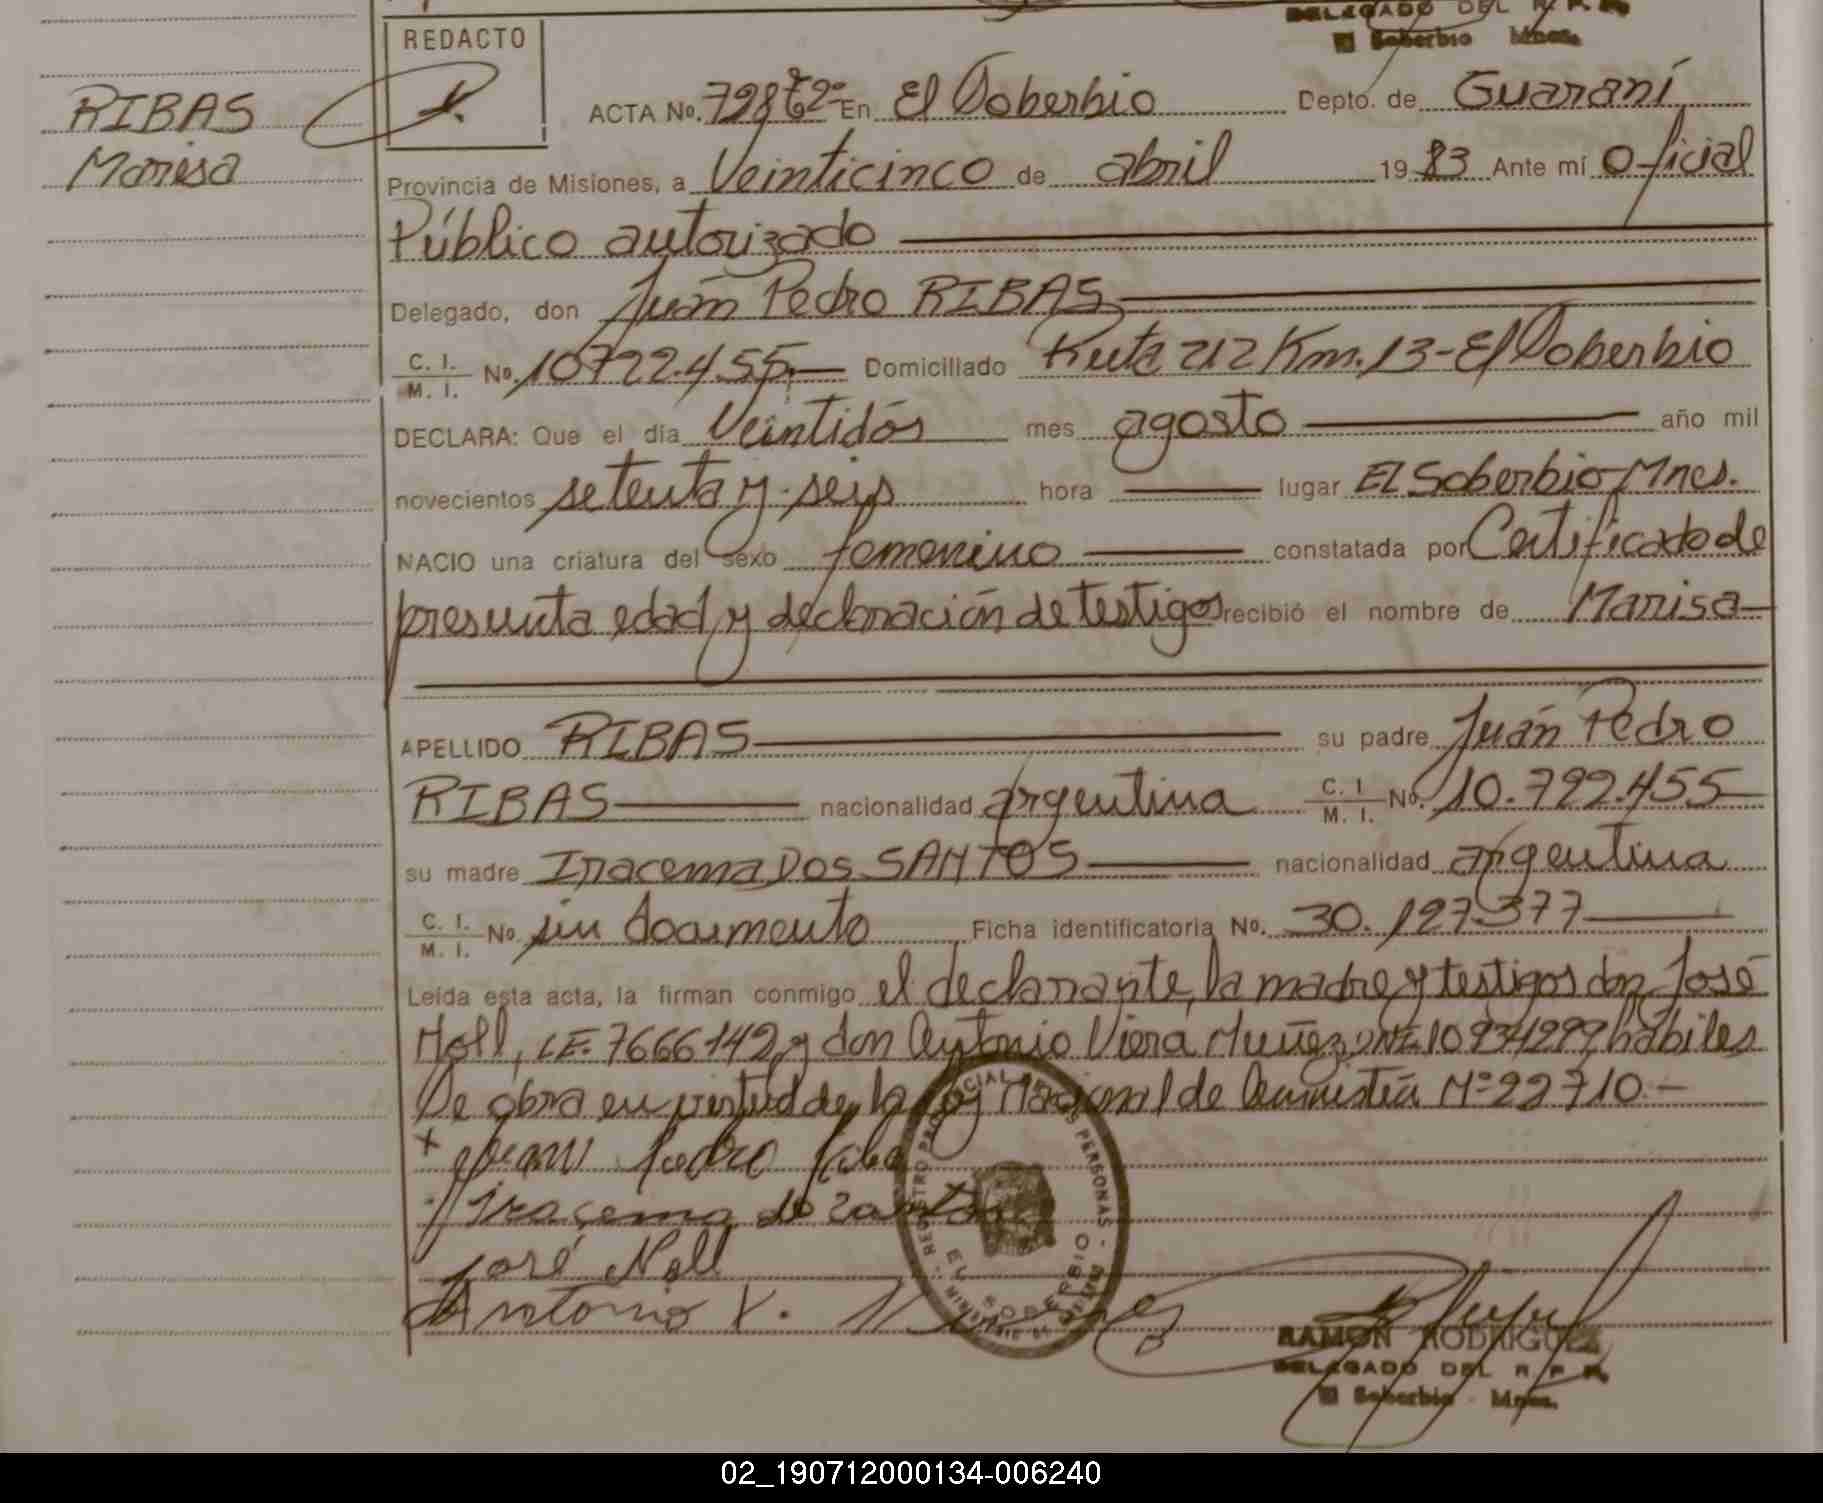 DELEGADO DEL R. P. P.
El Soberbio Mnes.
REDACTO
RIBAS
Marisa
ACTA No. En El Soberbio Depto. de Guaraní
Provincia de Misiones, a Veinticinco de abril 19 83 Ante mí Oficial
Público autorizado
Delegado, don Juán Pedro RIBAS
C. I. / M. I. No. 10722.455. Domiciliado Ruta 212 Km. 13-El Soberbio
DECLARA: Que el día Veintidós mes agosto año mil
novecientos setenta y seis hora lugar El Soberbio-Mnes.
NACIO una criatura del sexo femenino constatada por Certificado de
presunta edad y declaración de testigos recibió el nombre de Marisa
APELLIDO RIBAS su padre Juán Pedro
RIBAS nacionalidad argentina C. I. / M. I. No. 10.722.455
su madre Iracema Dos SANTOS nacionalidad argentina
C. I. / M. I. No. sin documento Ficha identificatoria No. 30.127.377
Leída esta acta, la firman conmigo el declarante, la madre y testigos don José
Noll, LE. 7666142 y don Antonio Viera Muñez, DNI. 10934299, hábiles
De obra en virtud de la Ley Nacional de Amnistía Nº 22710.-
x Juan Pedro Riba
Iracema do Santos
José Noll
Antonio V.
REGISTRO PROVINCIAL DE LAS PERSONAS
EL SOBERBIO
RAMON RODRIGUEZ
DELEGADO DEL R. P. P.
El Soberbio - Mnes.
02_190712000134-006240